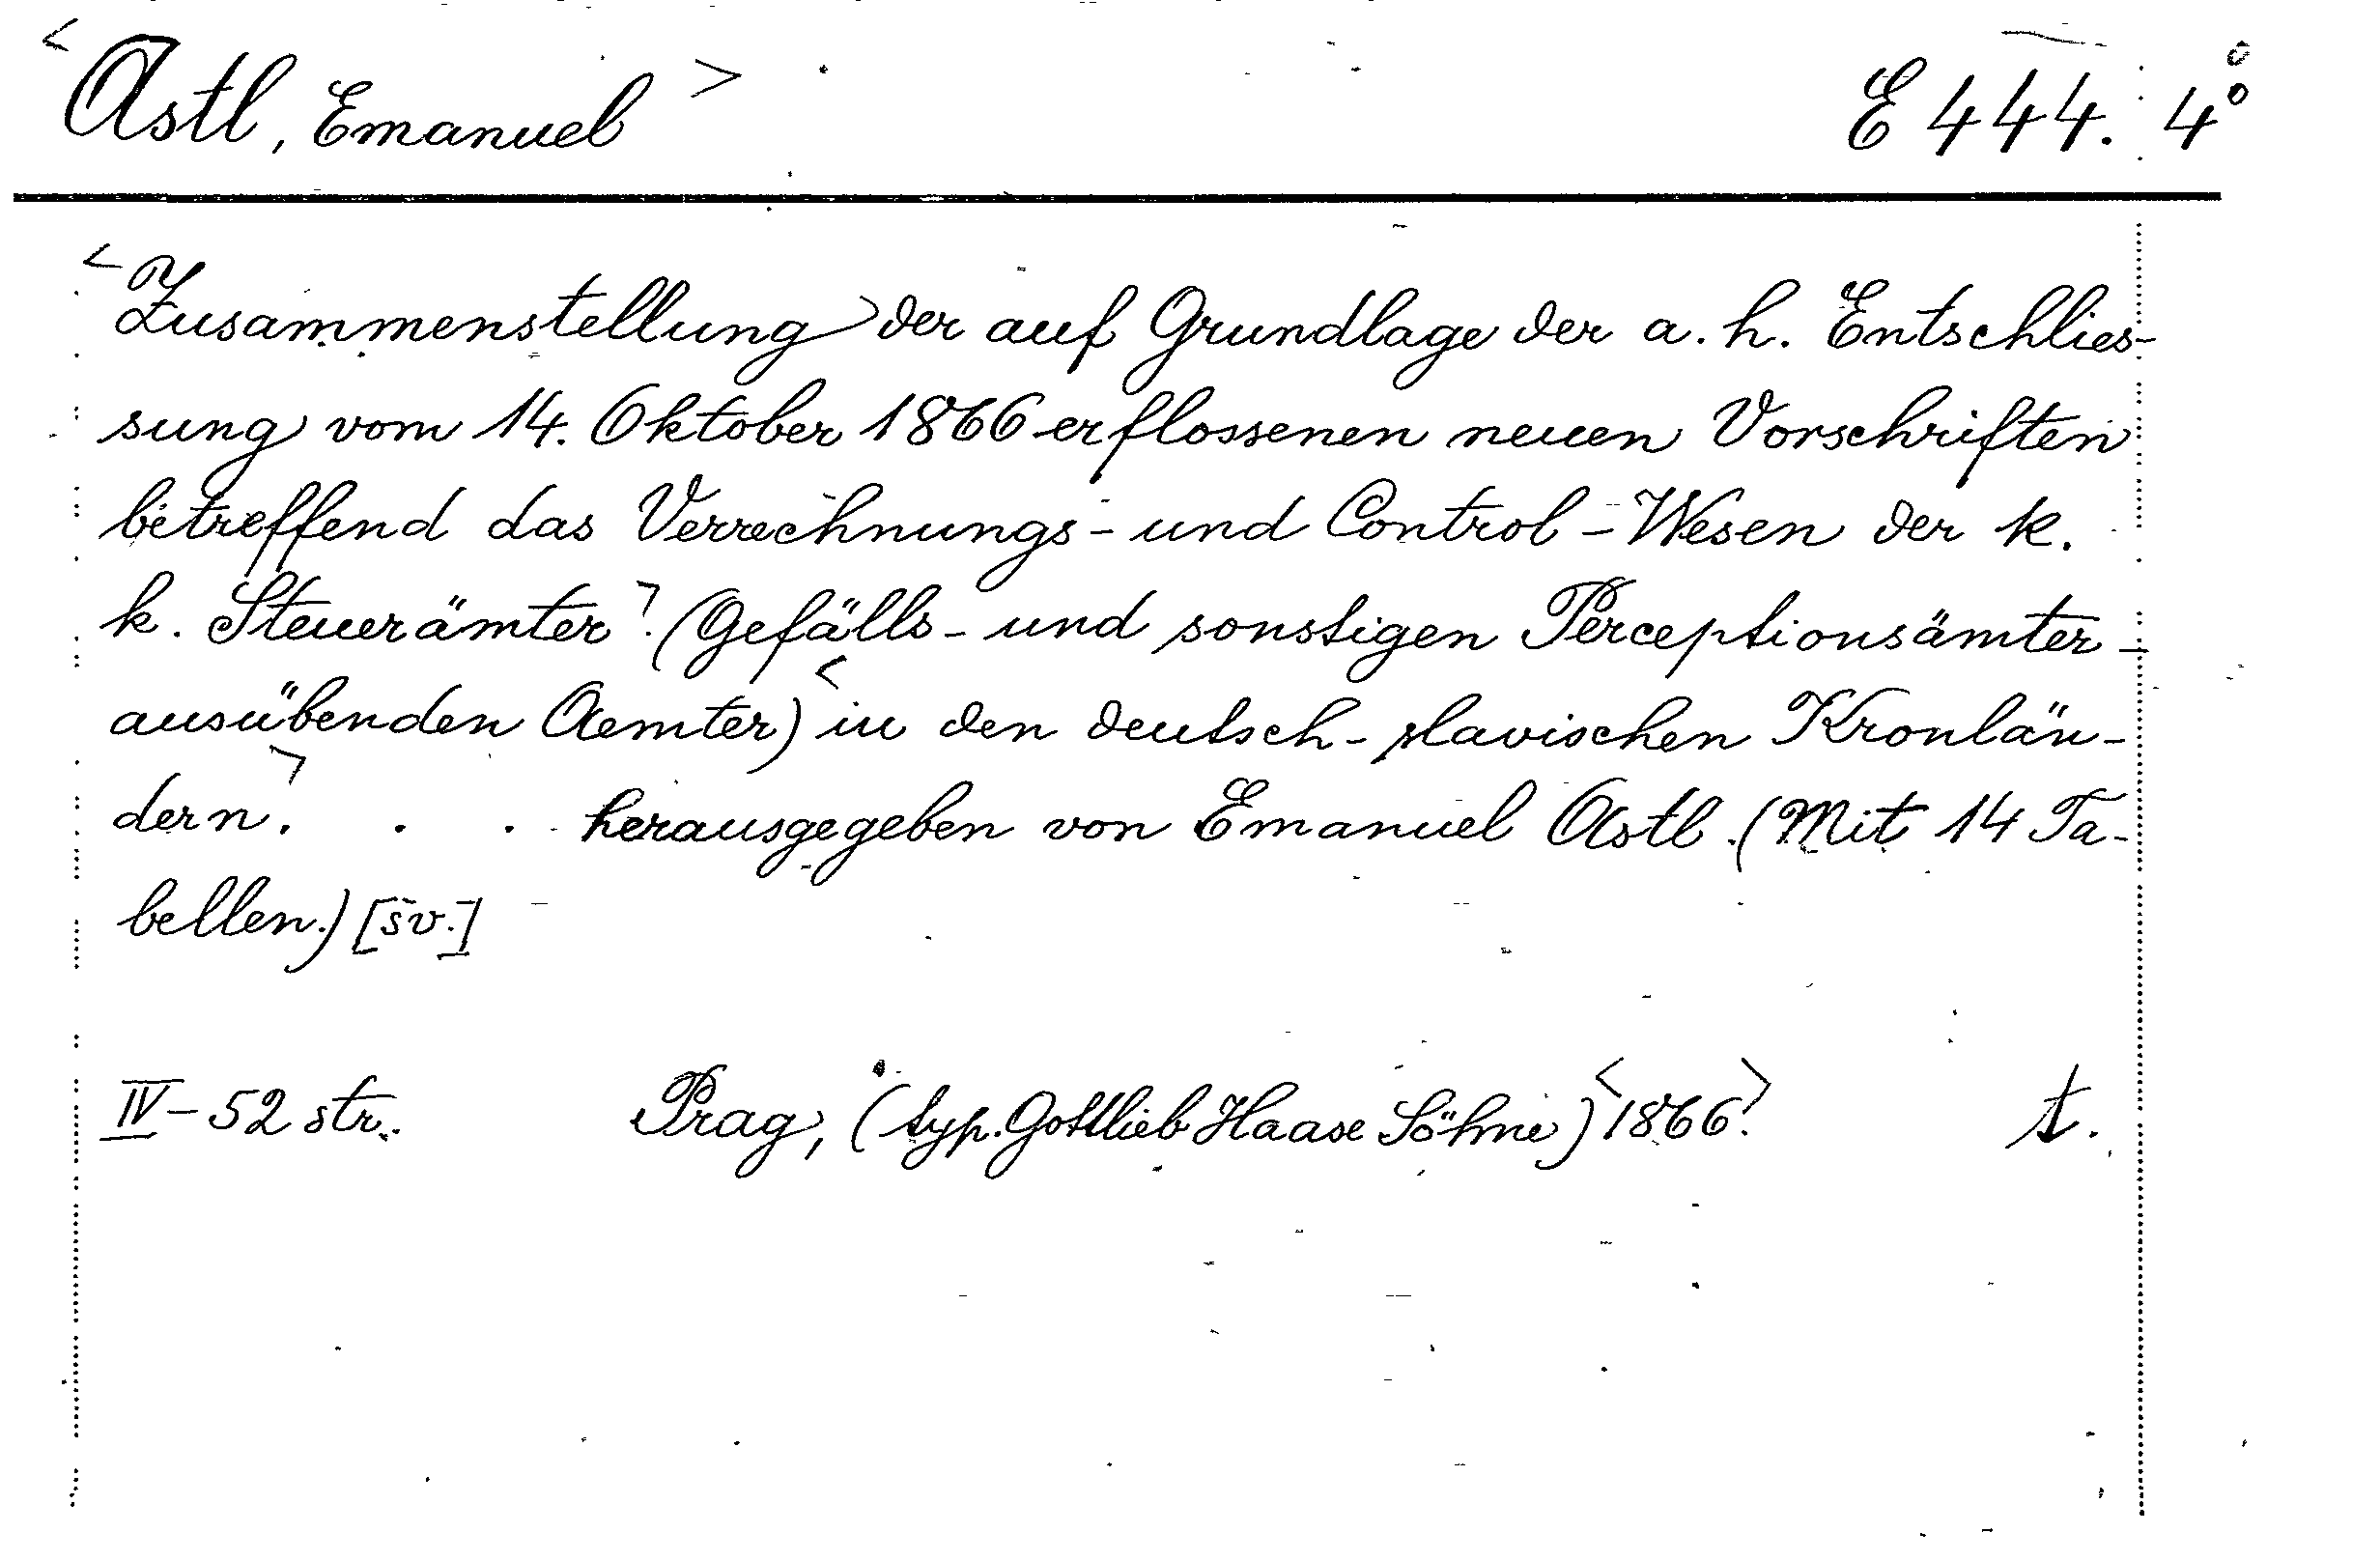 <Astl, Emanuel> E 444. 4°
<Zusammenstellung> der auf Grundlage der a. h. Entschlies-
sung vom 14. Oktober 1866 erflossenen neuen Vorschriften
betreffend das Verrechnungs- und Control-Wesen der k.
k. Steuerämter>. (Gefälls- und sonstigen Perceptionsämter-
ausübenden Aemter) <in den deutsch-slavischen Kronlän-
dern>. . . herausgegeben von Emanuel Astl. (Mit 14 Ta-
bellen.) [sv.]
IV-52 str. Prag, (typ. Gottlieb Haase Söhne) <1866>. t.